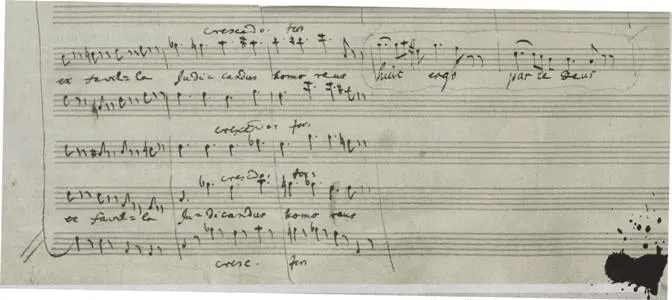 crescdo. for
ex favil=la Judicandus homo reus huic ergo parce Deus
cresc for:
crescdo: for:
ex favil=la Ju=dicandus homo reus
cresc. for